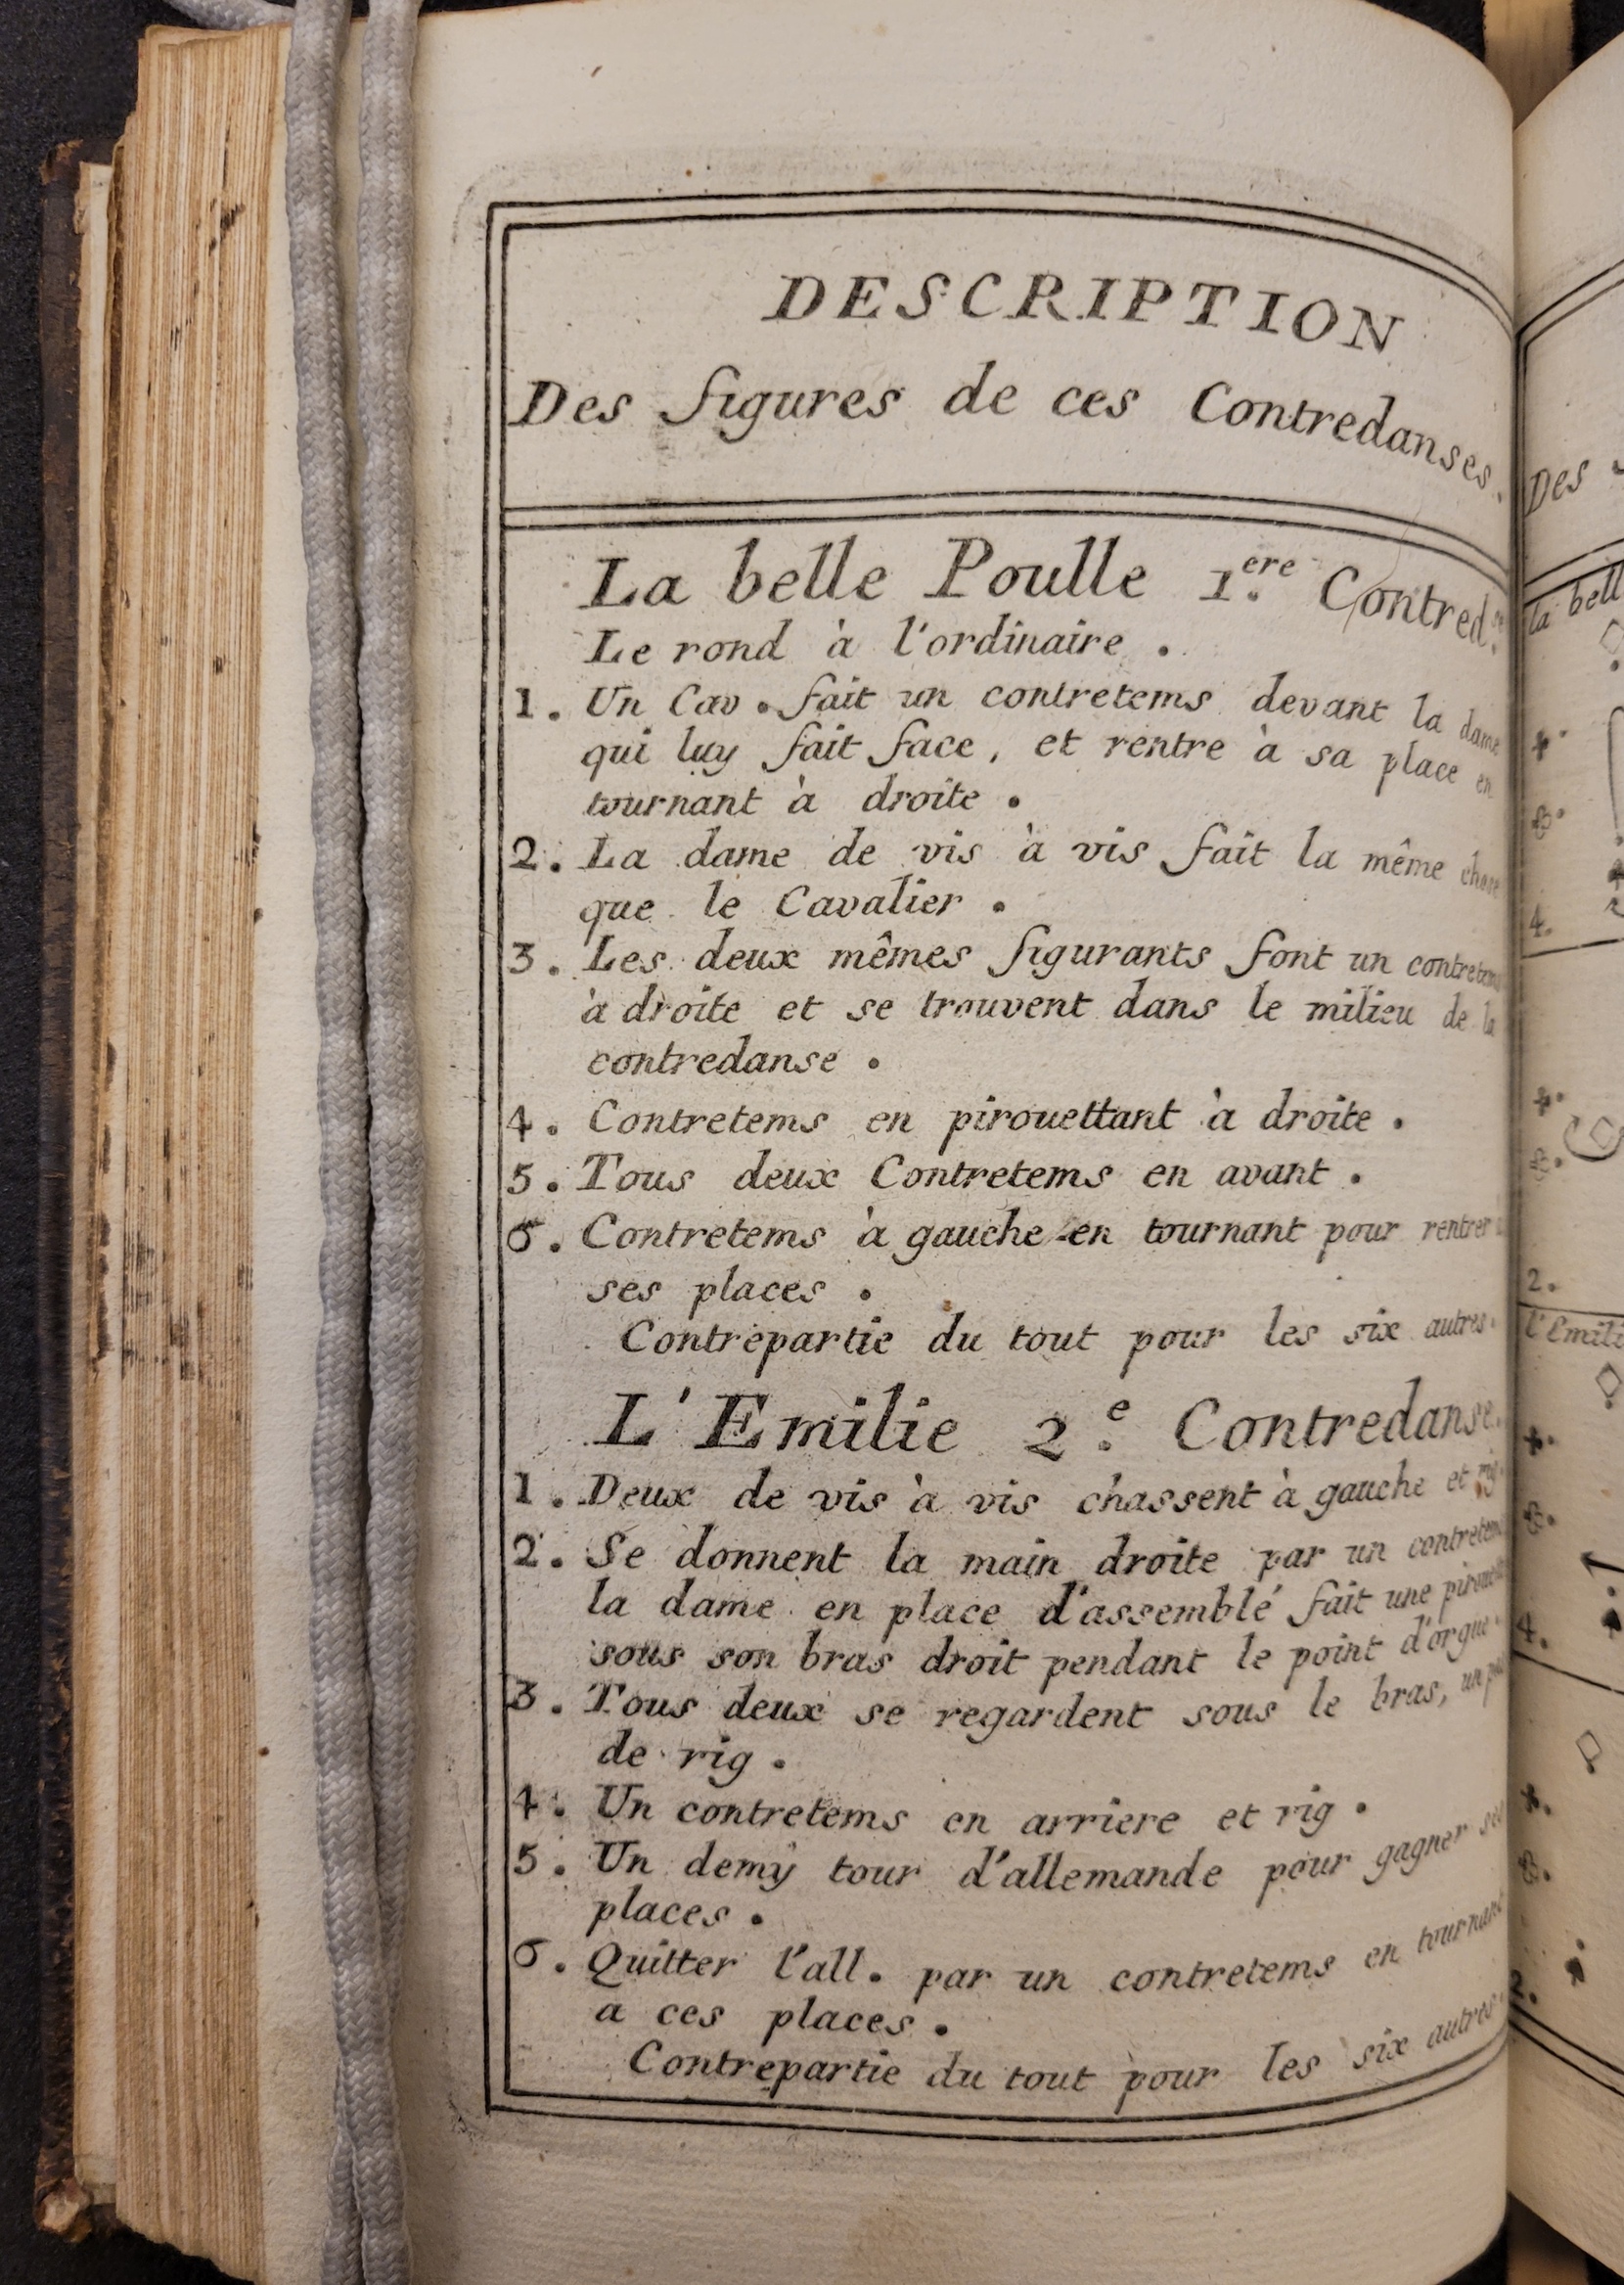 DESCRIPTION
Des figures de ces Contredanses.
La belle Poulle 1.ere Contred.se
Le rond à l'ordinaire.
1. Un Cav. fait un contretems devant la dame
qui luy fait face, et rentre à sa place en
tournant à droite.
2. La dame de vis à vis fait la même chose
que le Cavalier.
3. Les deux mêmes figurants font un contretems
à droite et se trouvent dans le milieu de la
contredanse.
4. Contretems en pirouettant à droite.
5. Tous deux Contretems en avant.
6. Contretems à gauche en tournant pour rentrer
ses places.
Contrepartie du tout pour les six autres.
L'Emilie 2.e Contredanse.
1. Deux de vis à vis chassent à gauche et rig.
2. Se donnent la main droite par un contretems
la dame en place d'assemblé fait une
sous son bras droit pendant le point d'orgue.
3. Tous deux se regardent sous le bras, un
de rig.
4. Un contretems en arriere et rig.
5. Un demy tour d'allemande pour gagner ses
places.
6. Quitter l'all. par un contretems en tournant
a ces places.
Contrepartie du tout pour les six autres.
Des
la bell
4.
2.
l'Emili
4.
2.